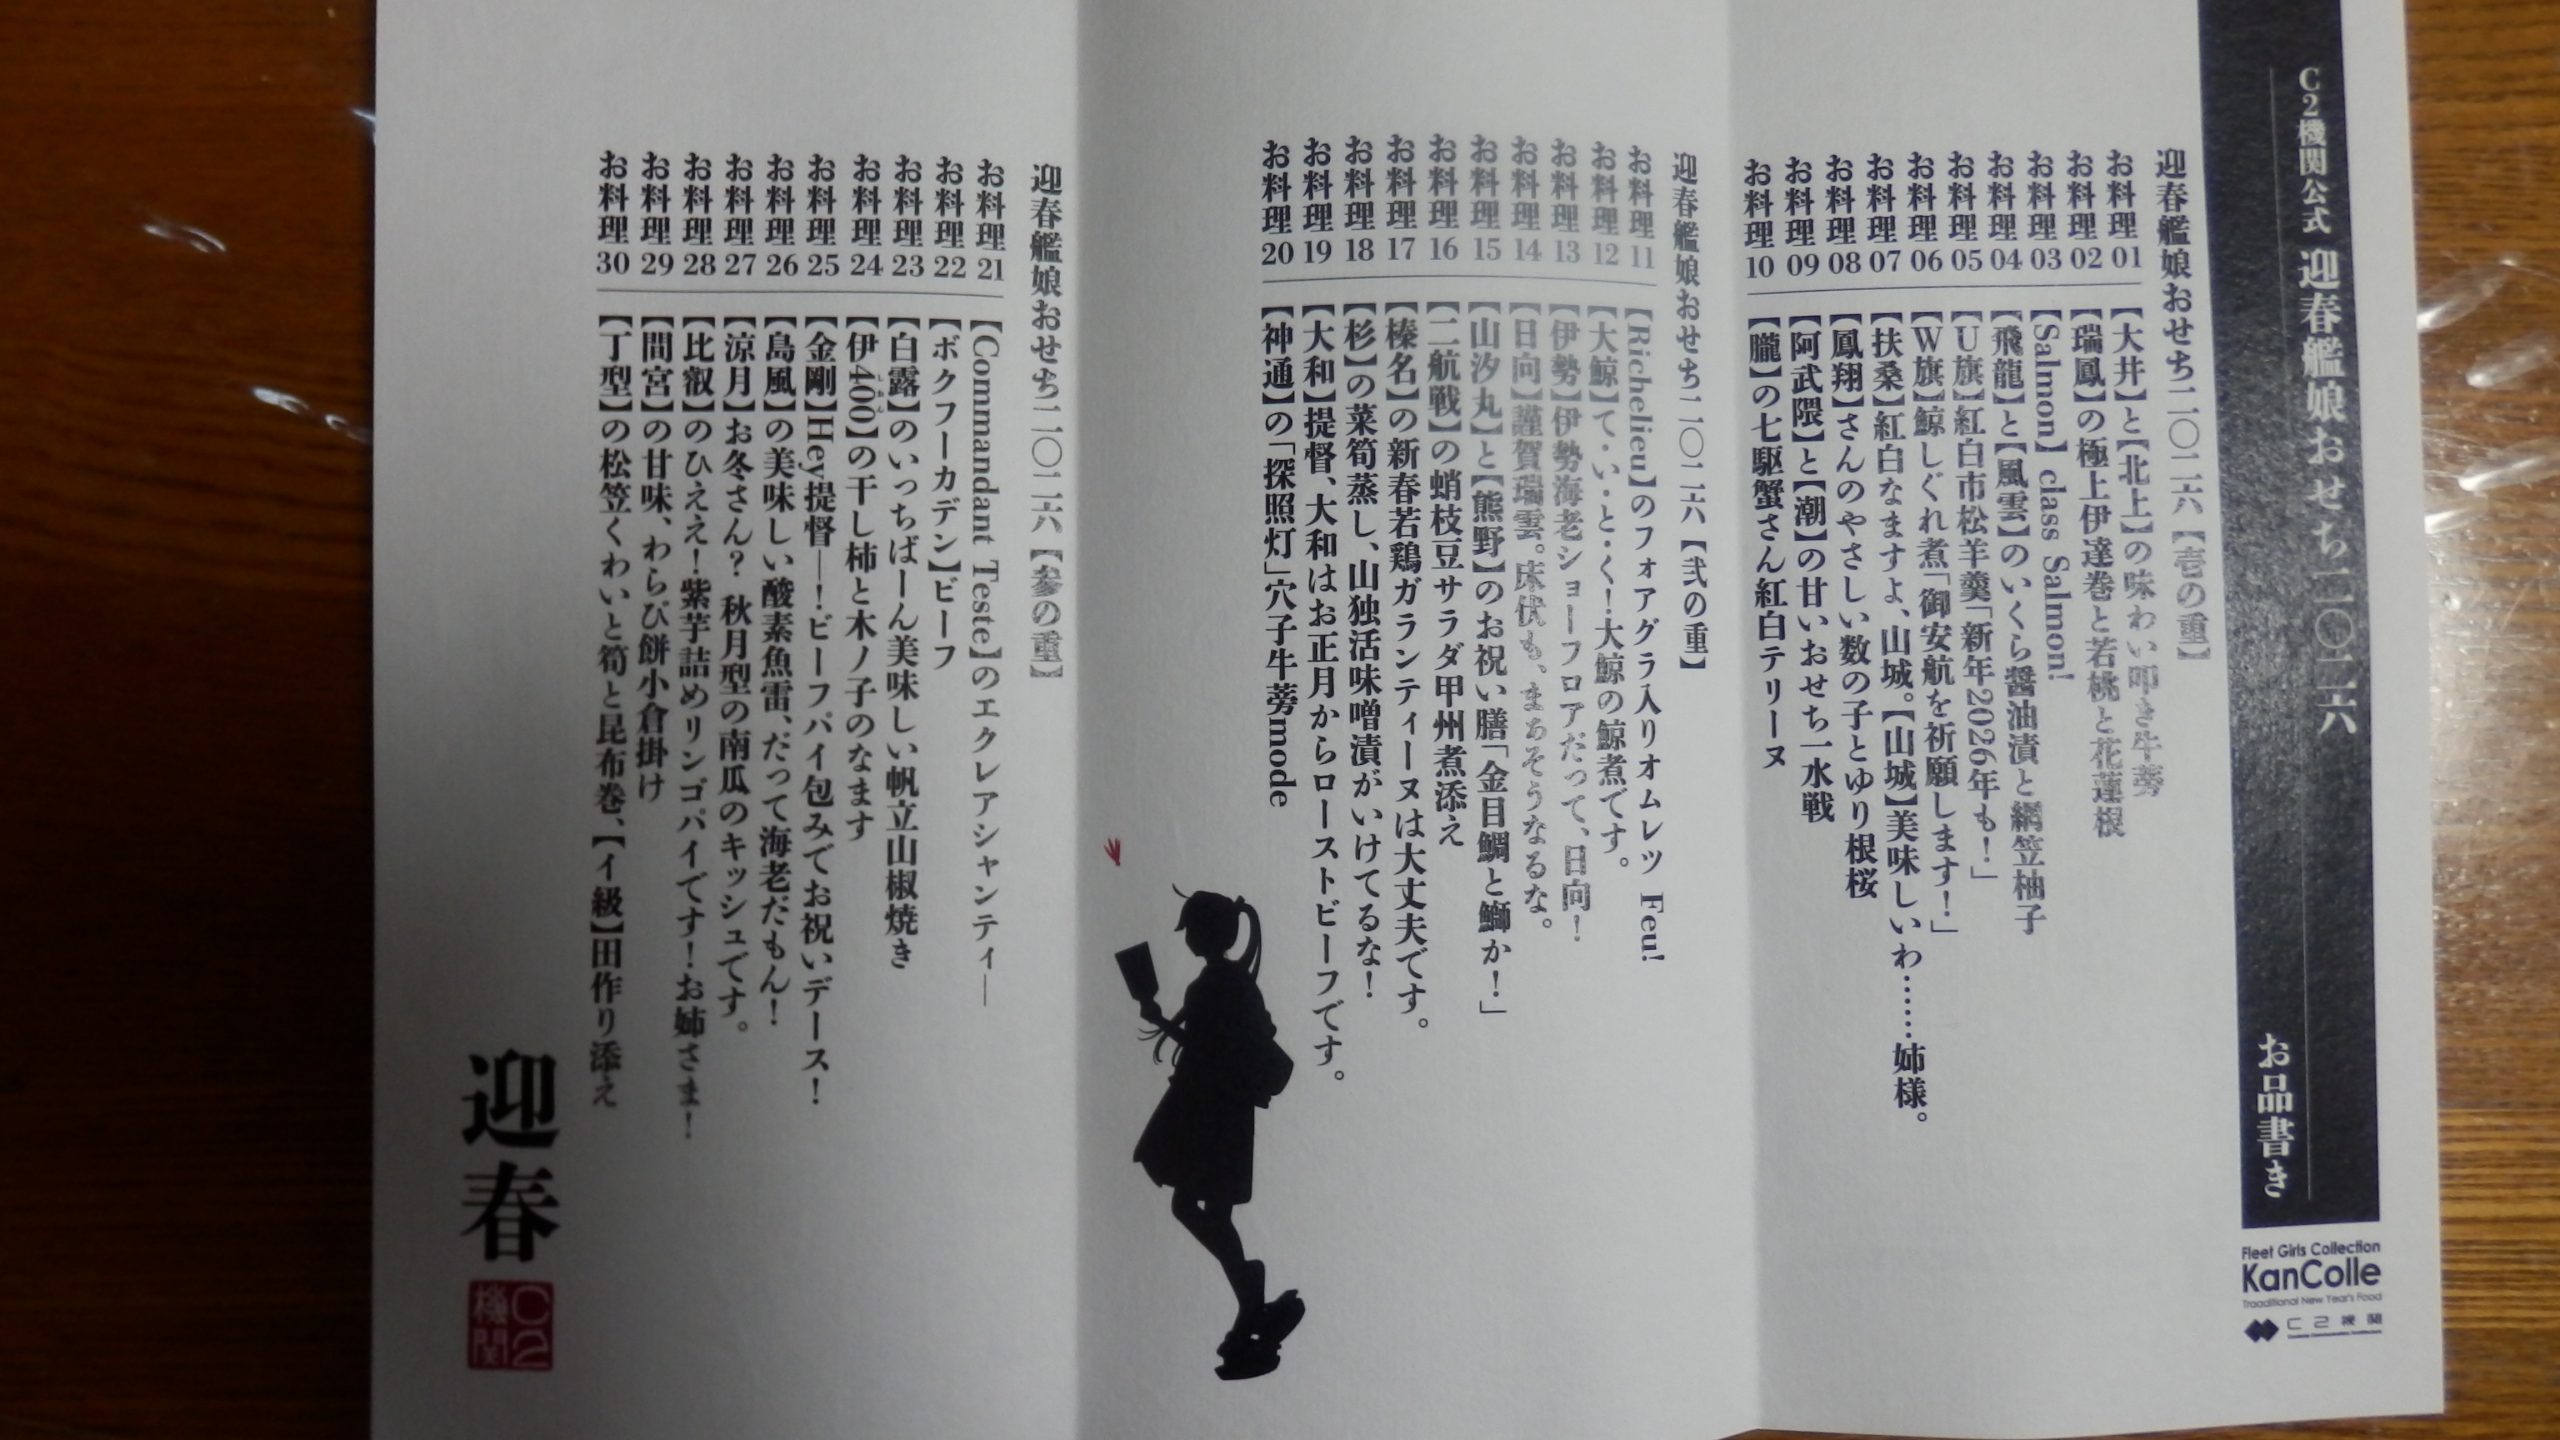 C2機関公式 迎春艦娘おせち二〇二六
お品書き
Fleet Girls Collection
KanColle
Traaditional New Year's Food
C2機関
迎春艦娘おせち二〇二六【壱の重】
お料理01 【大井】と【北上】の味わい叩き牛蒡
お料理02 【瑞鳳】の極上伊達巻と若桃と花蓮根
お料理03 【Salmon】class Salmon!
お料理04 【飛龍】と【風雲】のいくら醤油漬と網笠柚子
お料理05 【U旗】紅白市松羊羹「新年2026年も！」
お料理06 【W旗】鯨しぐれ煮「御安航を祈願します！」
お料理07 【扶桑】紅白なますよ、山城。【山城】美味しいわ……姉様。
お料理08 【鳳翔】さんのやさしい数の子とゆり根桜
お料理09 【阿武隈】と【潮】の甘いおせち一水戦
お料理10 【朧】の七駆蟹さん紅白テリーヌ
迎春艦娘おせち二〇二六【弐の重】
お料理11 【Richelieu】のフォアグラ入りオムレツ Feu!
お料理12 【大鯨】て・い・と・く！大鯨の鯨煮です。
お料理13 【伊勢】伊勢海老ショーフロアだって、日向！
お料理14 【日向】謹賀瑞雲。床伏も、まぁそうなるな。
お料理15 【山汐丸】と【熊野】のお祝い膳「金目鯛と鰤か！」
お料理16 【二航戦】の蛸枝豆サラダ甲州煮添え
お料理17 【榛名】の新春若鶏ガランティーヌは大丈夫です。
お料理18 【杉】の菜筍蒸し、山独活味噌漬がいけてるな！
お料理19 【大和】提督、大和はお正月からローストビーフです。
お料理20 【神通】の「探照灯」穴子牛蒡mode
迎春艦娘おせち二〇二六【参の重】
お料理21 【Commandant Teste】のエクレアシャンティ―
お料理22 【ボクフーカデン】ビーフ
お料理23 【白露】のいっちばーん美味しい帆立山椒焼き
お料理24 【伊400】の干し柿と木ノ子のなます
お料理25 【金剛】Hey提督―！ビーフパイ包みでお祝いデース！
お料理26 【島風】の美味しい酸素魚雷、だって海老だもん！
お料理27 【涼月】お冬さん？ 秋月型の南瓜のキッシュです。
お料理28 【比叡】のひええ！紫芋詰めリンゴパイです！お姉さま！
お料理29 【間宮】の甘味、わらび餅小倉掛け
お料理30 【丁型】の松笠くわいと筍と昆布巻、【イ級】田作り添え
迎春
C2機関